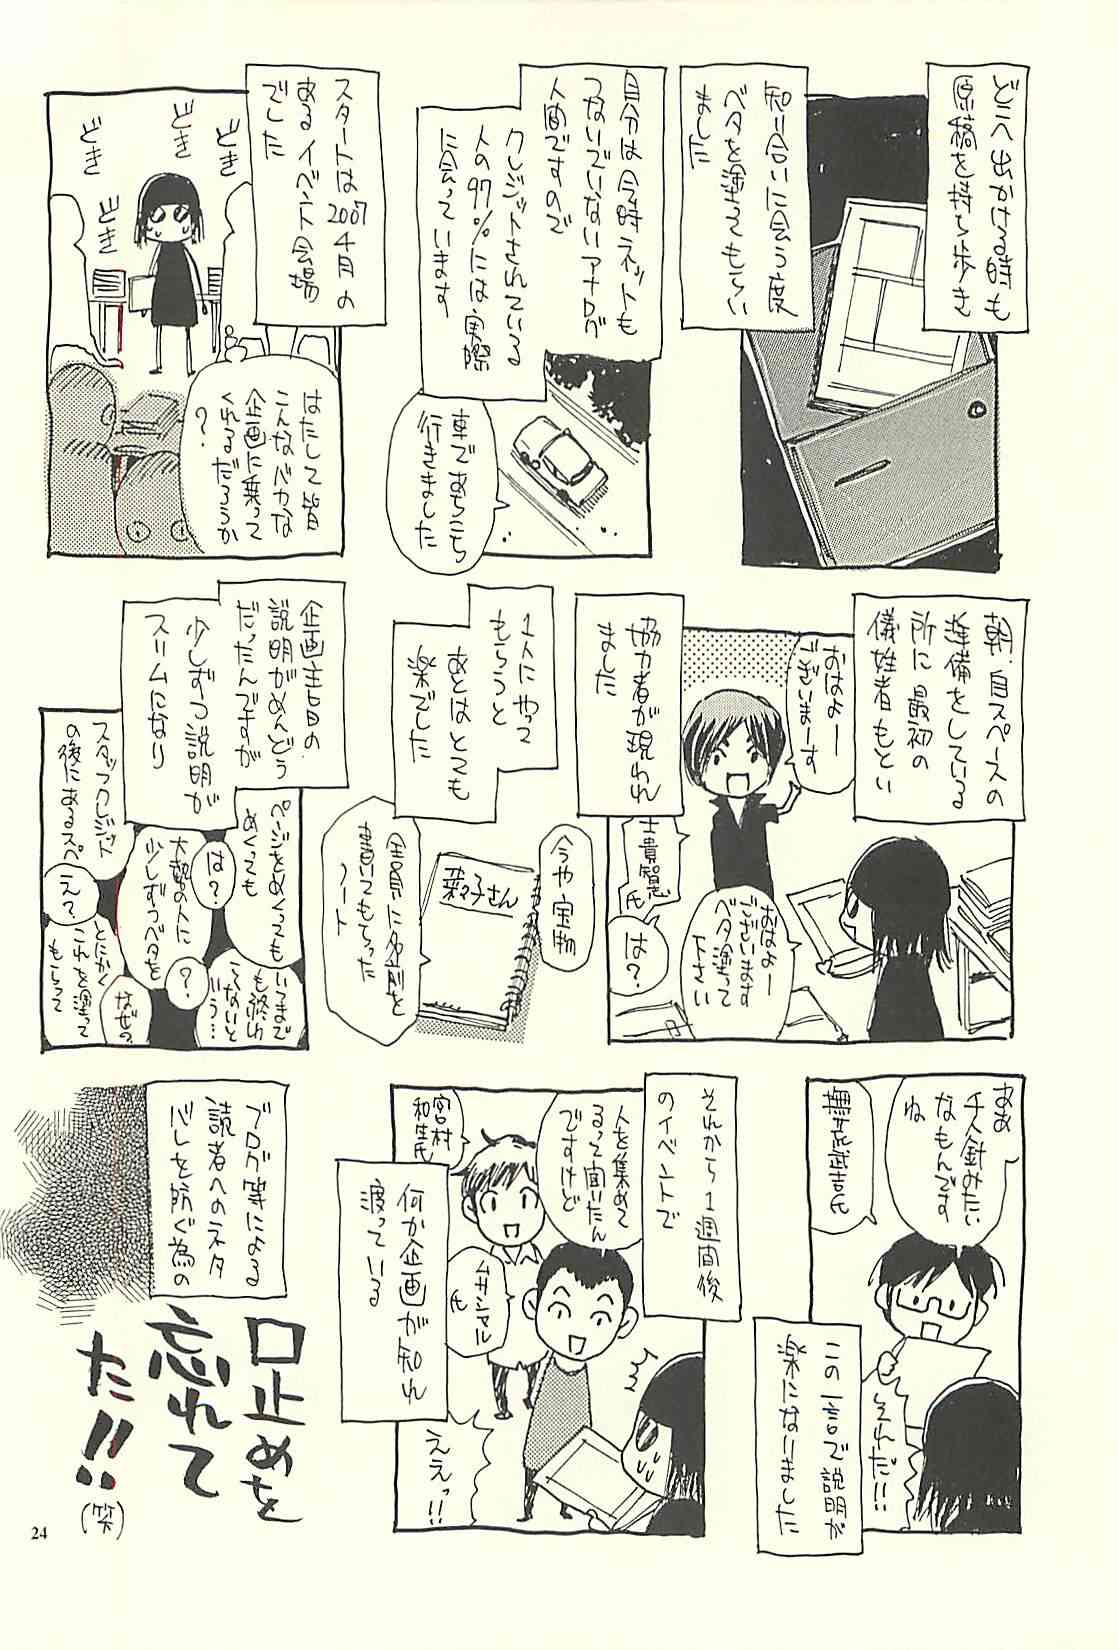 どこへ出かける時も
原稿を持ち歩き
知り合いに会う度
ベタを塗ってもらい
ました
自分は今時ネットも
つないでいないアナログ
人間ですので
クレジットされている
人の97%には実際
に会っています
車であちこち
行きました
スタートは
2007
4月の
あるイベント会場
でした
どき
どき
どき
どき
はたして皆
こんなバカな
企画に乗って
くれるだろうか
?
朝、自スペースの
準備をしている
所に最初の
儀姓者もとい
おはよー
ございまーす
士貴智志
氏
おはよー
ございます
ベタ塗って
下さい
は?
協力者が現われ
ました
1人にやって
もらうと
あとはとても
楽でした
今や宝物
菜々子さん
全員に名前を
書いてもらった
ノート
企画主旨の
説明がめんどう
だったんですが
少しずつ説明が
スリムになり
ページをめくっても
めくっても
いつまで
も終わ
らないと
いう…
は?
大勢の人に
少しずつベタを
?
スタッフクレジット
の後にあるスペ
え?
とにかく
これを塗って
もらって
なぜ?
ああ
千人針みたい
なもんです
ね
撫荒武吉氏
それだ!!
この一言で説明が
楽になりました
それから1週間後
のイベントで
人を集めて
るって聞いたん
ですけど
宮村
和生氏
ムサシマル
氏
何か企画が知れ
渡っている
ええっ!!
ブログ等による
読者へのネタ
バレを防ぐ為の
口止めを
忘れて
た!!
(笑)
24